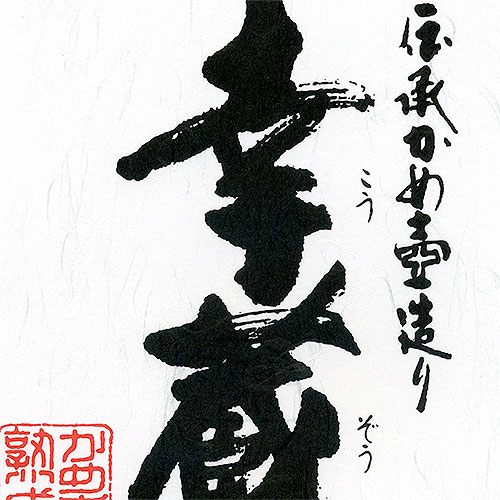 伝承かめ壺造り
幸蔵
こうぞう
かめ
熟成